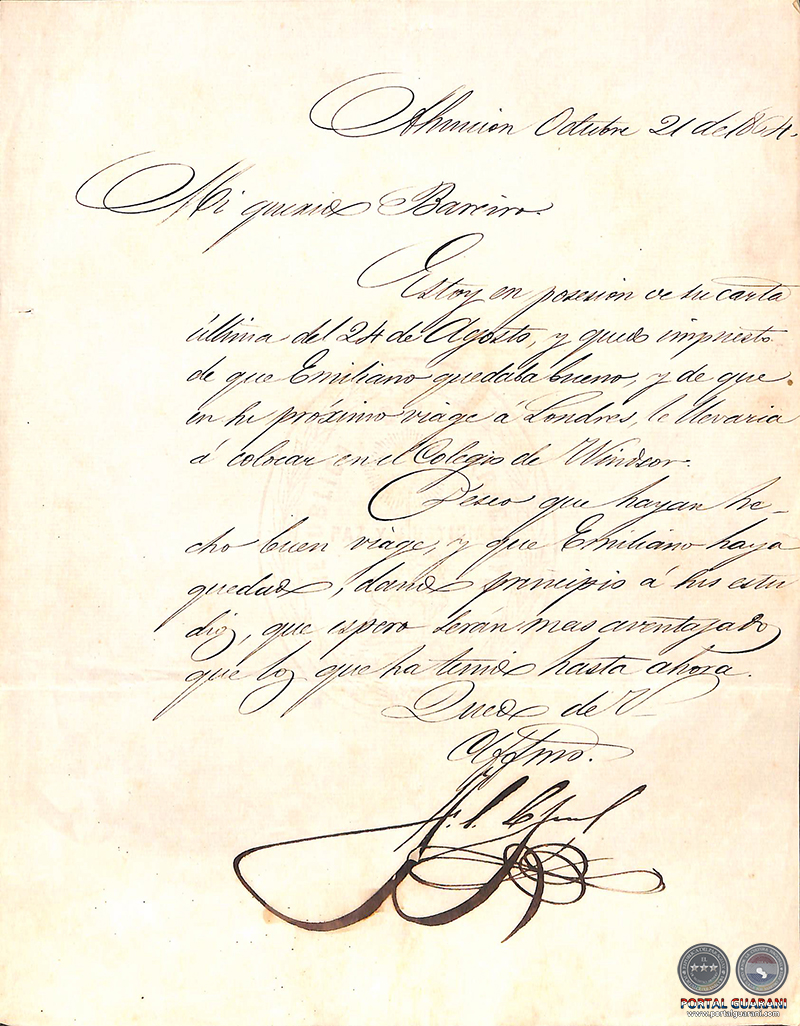 Asuncion Octubre 21 de 1864.
Mi querido Bareiro.
Estoy en posesion de su carta
última del 24 de Agosto, y quedo impuesto
de que Emiliano quedaba bueno, y de que
en su próximo viage á Londres, le llevaria
á colocar en el Colegio de Windsor.
Deseo que hayan he-
cho buen viage, y que Emiliano haya
quedado, dando principio á sus estu
dios, que espero serán mas aventajados
que los que ha tenido hasta ahora.
Quedo de V
Affmo.
PORTAL GUARANI
www.portalguarani.com